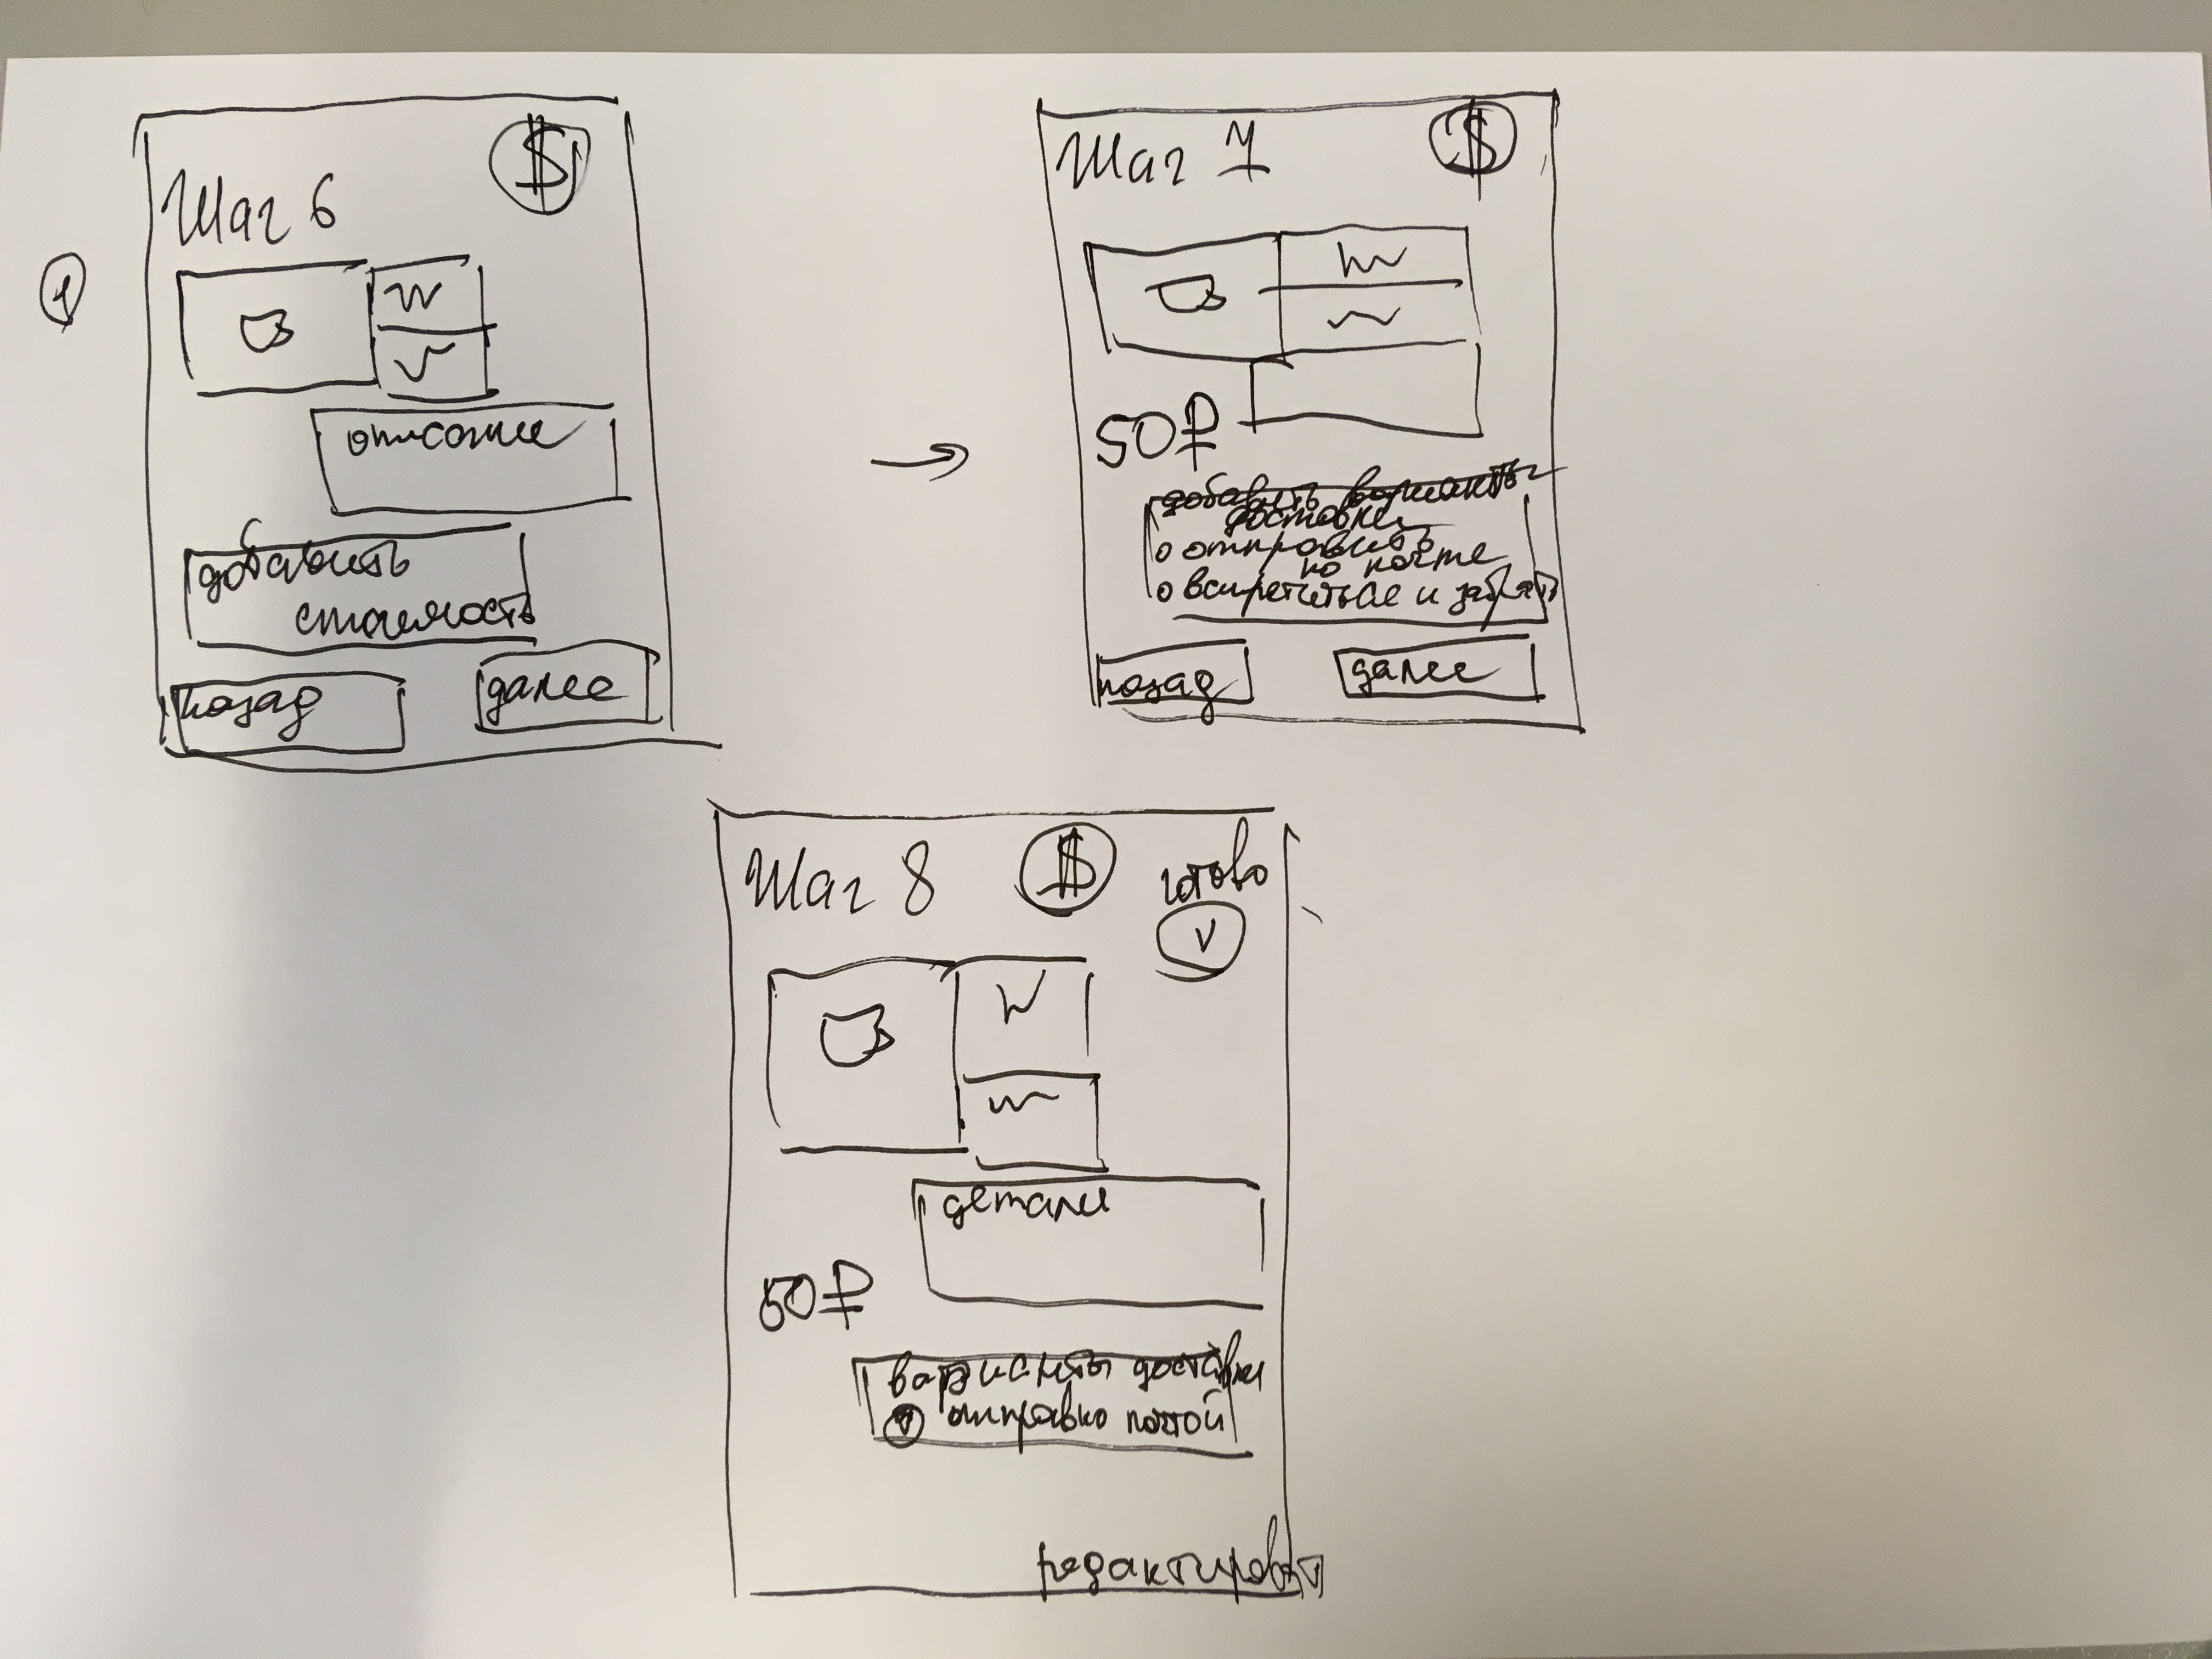 1
Шаг 6
$
описание
добавить
стоимость
назад
далее
Шаг 7
$
50₽
добавить варианты
доставки
отправить
по почте
встретиться и забрать
назад
далее
Шаг 8
$
готово
v
детали
50₽
варианты доставки
v отправка почтой
редактироват